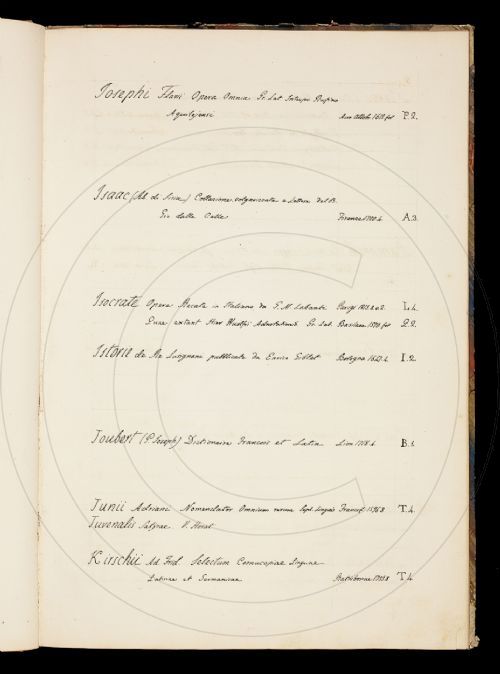 Josephi Flavii Opera Omnia Gr. Lat. Interpr. Rufino
Aquilejensi fol P.2.
Isaac (Ab. de Siria) Collazione volgarizzata e Lettere del B.
Gio. dalle Celle Firenze 4. A.3.
Isocrate Opere Recate in Italiano da G. M. Labanti Parigi L.4.
extant Hier. Wolfii Gr. Lat. Basileae fol
Istoria de Re Lusignani pubblicate da Enrico Giblet Bologna 1647.4. I.2.
Joubert (P. Joseph) Dictionaire Francois et Latin Lion 4. B.1.
Junii Adriani Nomenclator Omnium rerum Sept. linguis Francof. 8 T.4.
Juvenalis Satyrae. V. Horat.
Kirschii Ad. Frid. Selectum Cornucopiae Linguae
Latinae et Germanicae Ratisbonae 8 T.4.